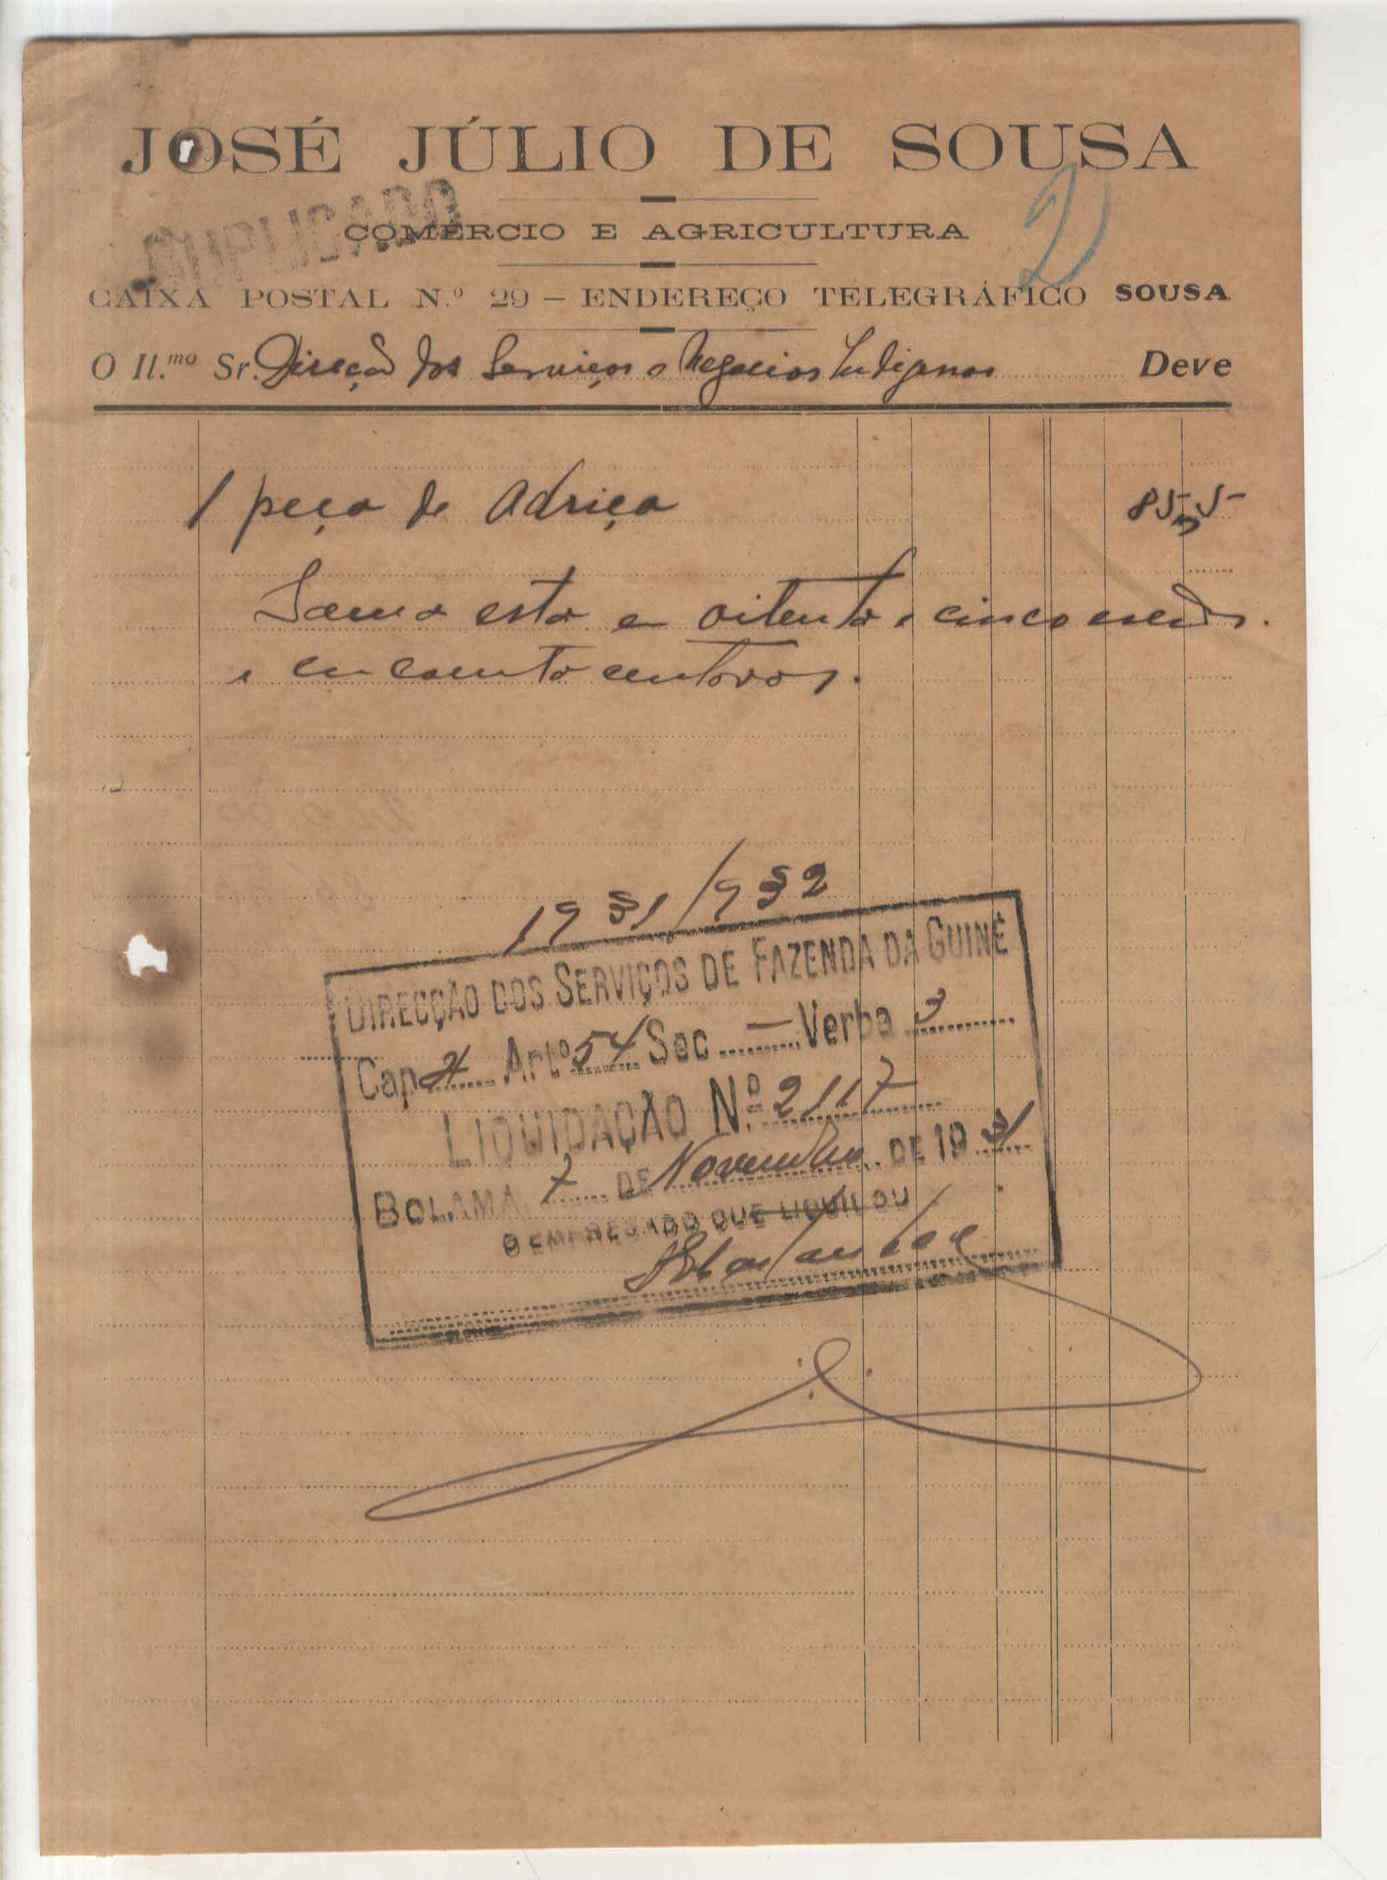 JOSÉ JÚLIO DE SOUSA
DUPLICADO
COMÉRCIO E AGRICULTURA
2
CAIXA POSTAL N.º 29 – ENDEREÇO TELEGRÁFICO SOUSA
O Il.mo Sr. Direcção dos Serviços e Negocios Indigenas Deve
1 peça de adriça
Soma esta em oitenta e cinco escudos
e cincoenta centavos.
1931/932
DIRECÇÃO DOS SERVIÇOS DE FAZENDA DA GUINÉ
Cap Artº 54 Sec — Verba 3
LIQUIDAÇÃO N.º 2117
BOLAMA, 7 DE Novembro DE 1931
O EMPREGADO QUE LIQUIDOU